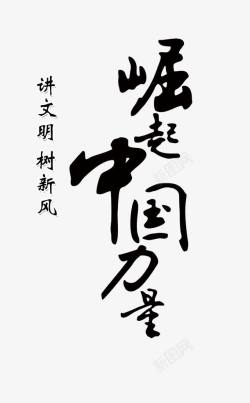 崛起中国力量
讲文明 树新风